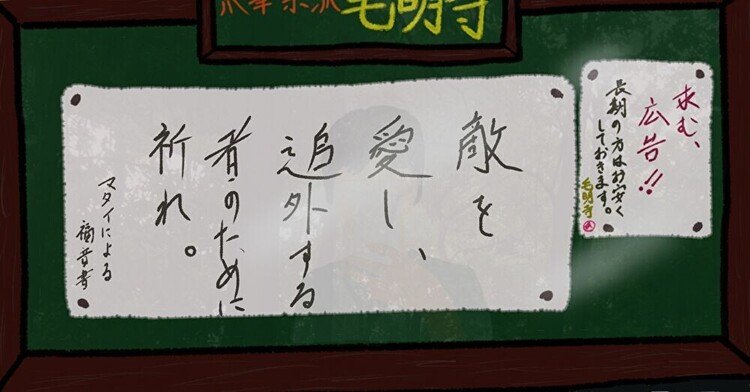 毛明寺
敵を
愛し、
追外する
者のために
祈れ。
マタイによる
福音書
求む、
広告!!
長期の方はお安く
しておきます。
毛明寺